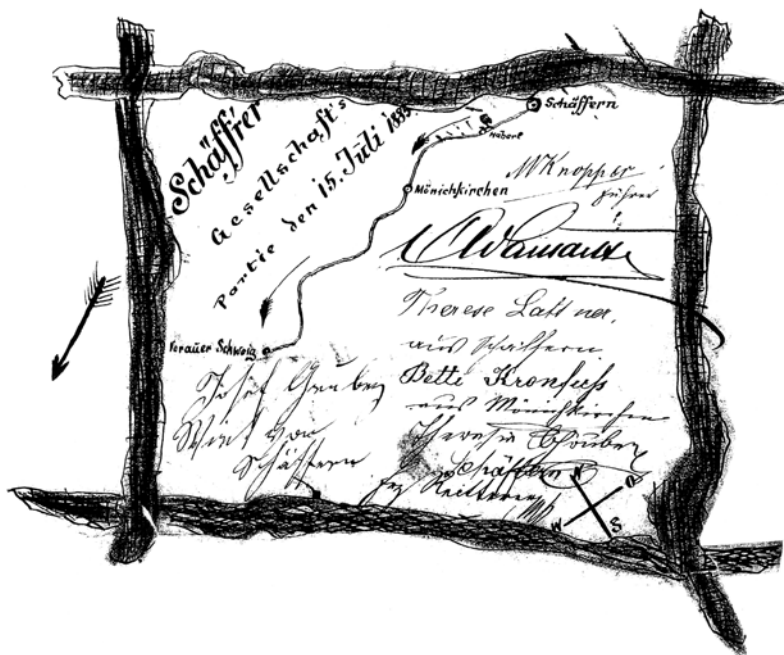 Schäffrer
Gesellschaft's
Partie den 15. Juli
Schäffern
Haberl
Mönichkirchen
Vorauer Schweiz
MKnopper
Führer
Therese Lattner,
aus Schäffern
Betti Kronfuss
aus Mönichkirchen
Theresia Gruber
Schäffern
Josef Gruber
Wirt von
Schäffern
N
O
S
W